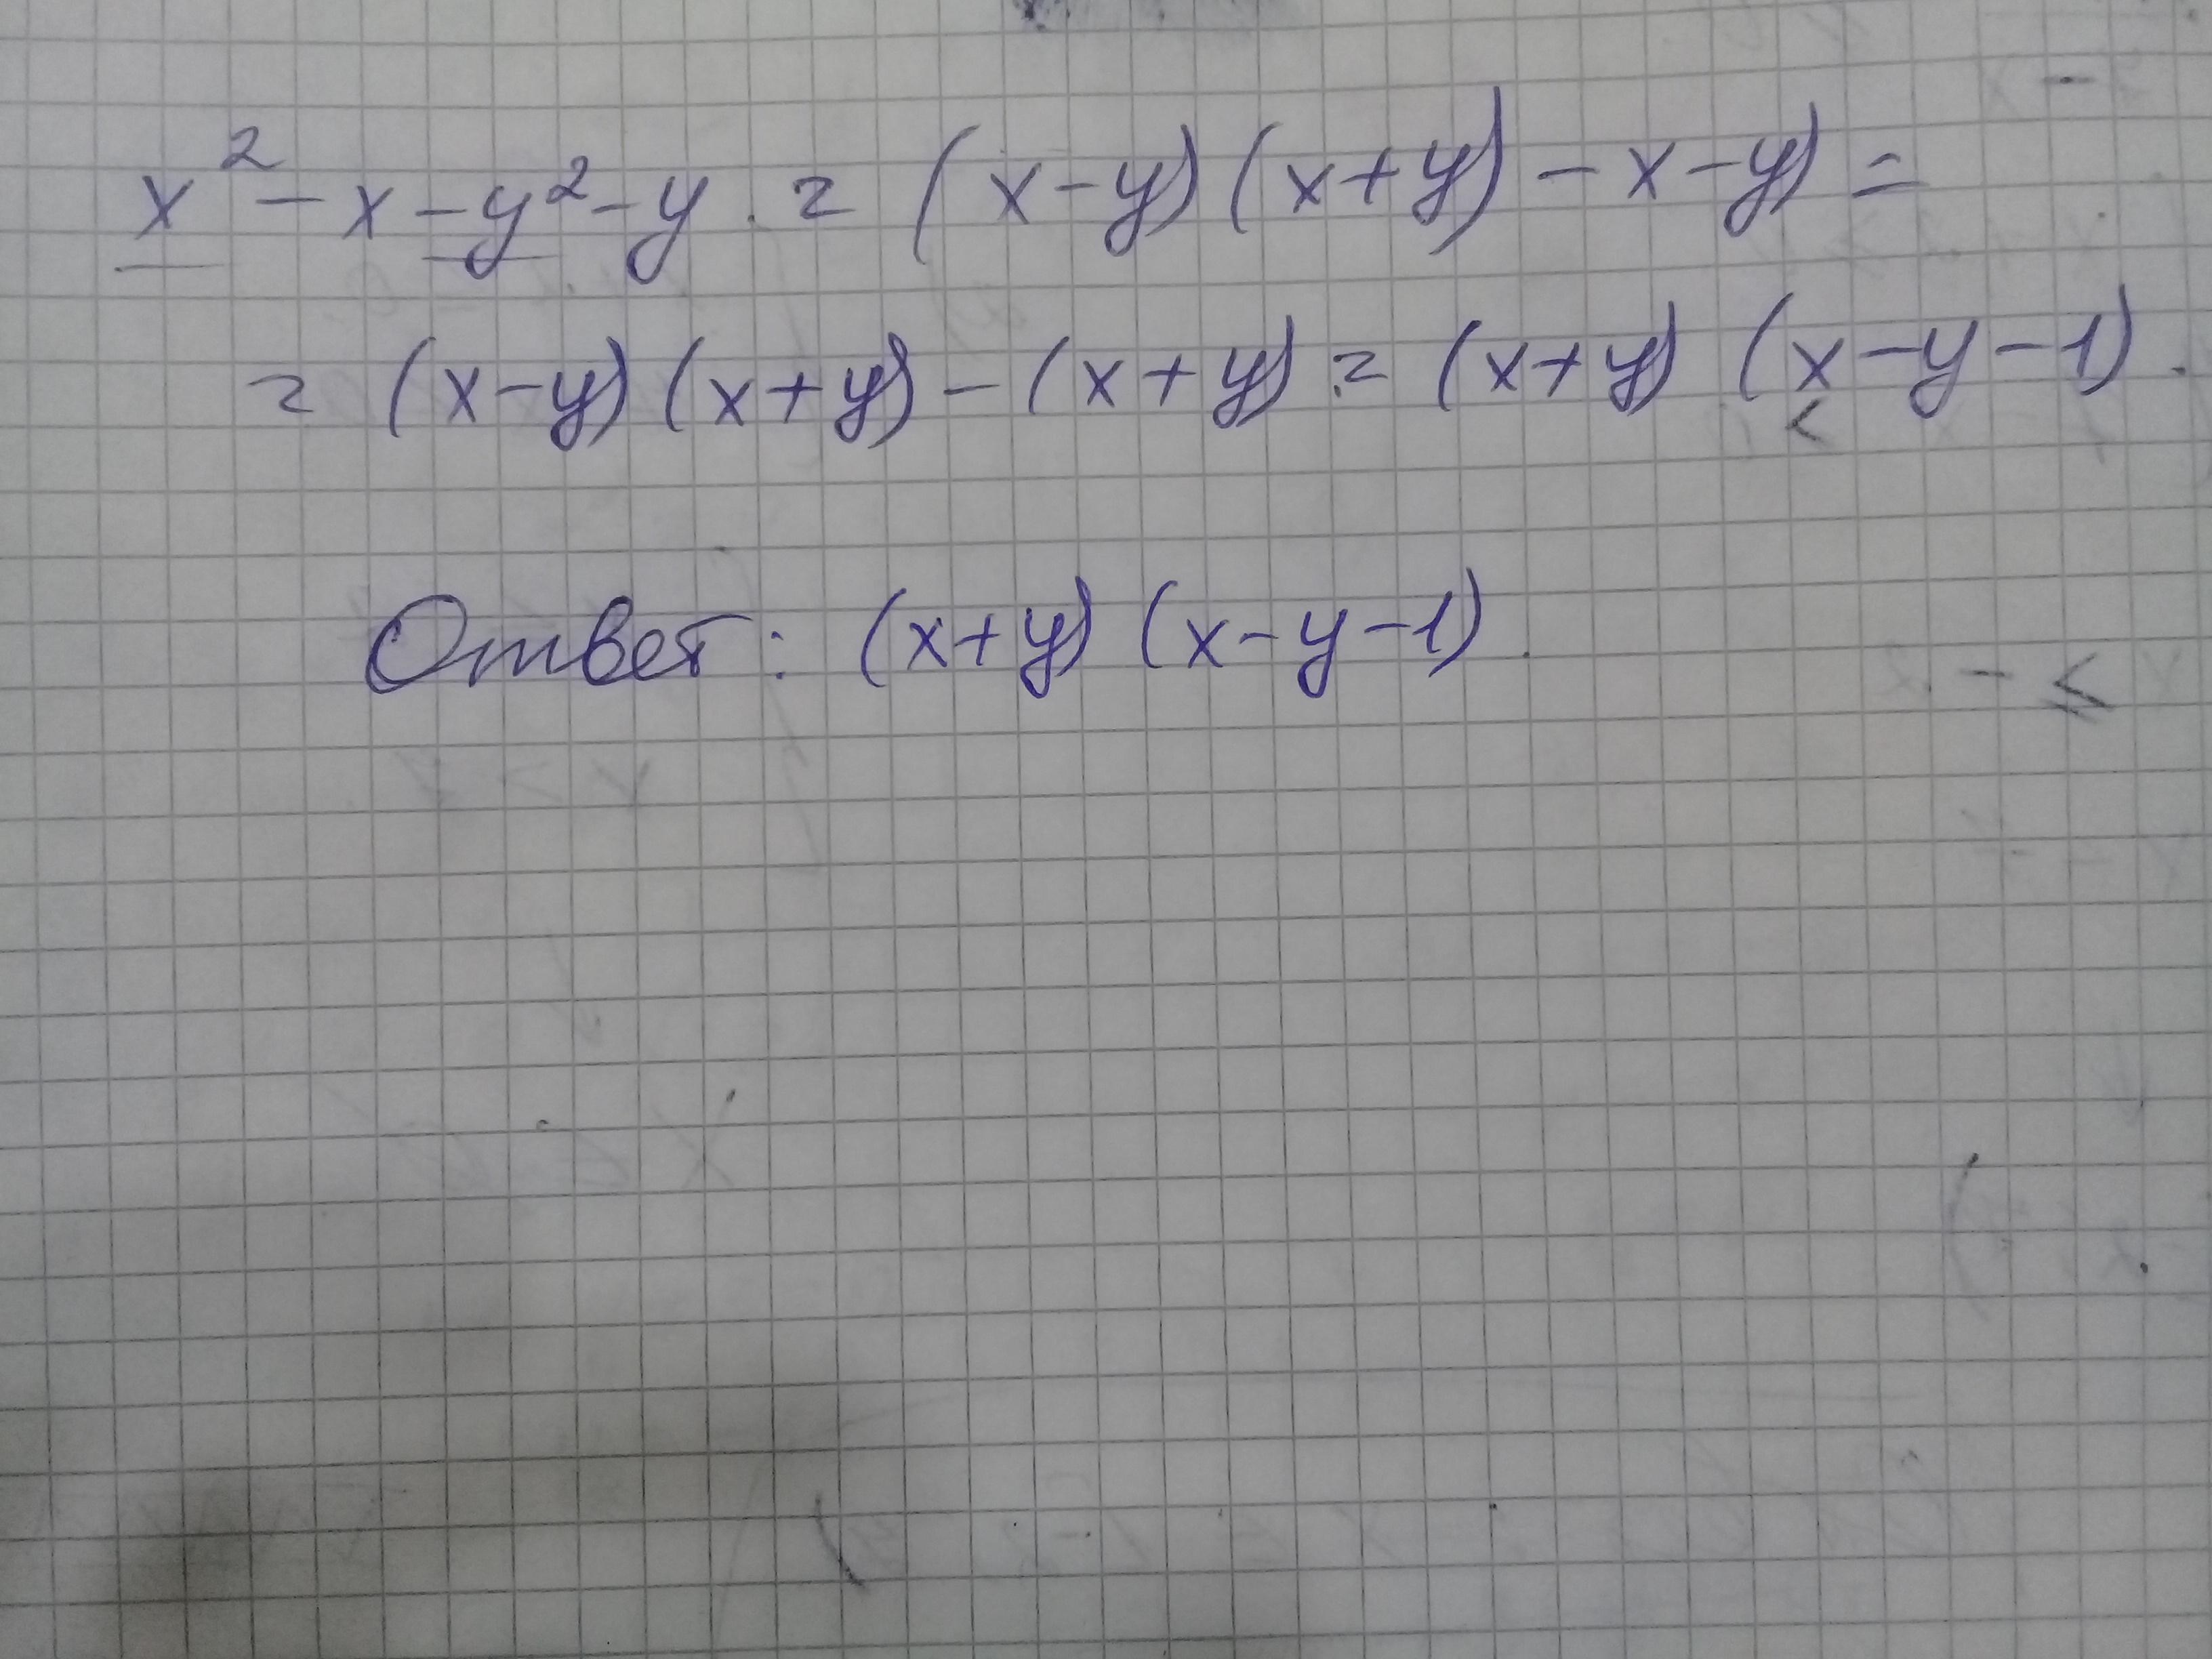 x² - x - y² - y. = (x-y)(x+y) - x - y) =
= (x-y)(x+y) - (x+y) = (x+y) (x-y-1).
Ответ: (x+y) (x-y-1).